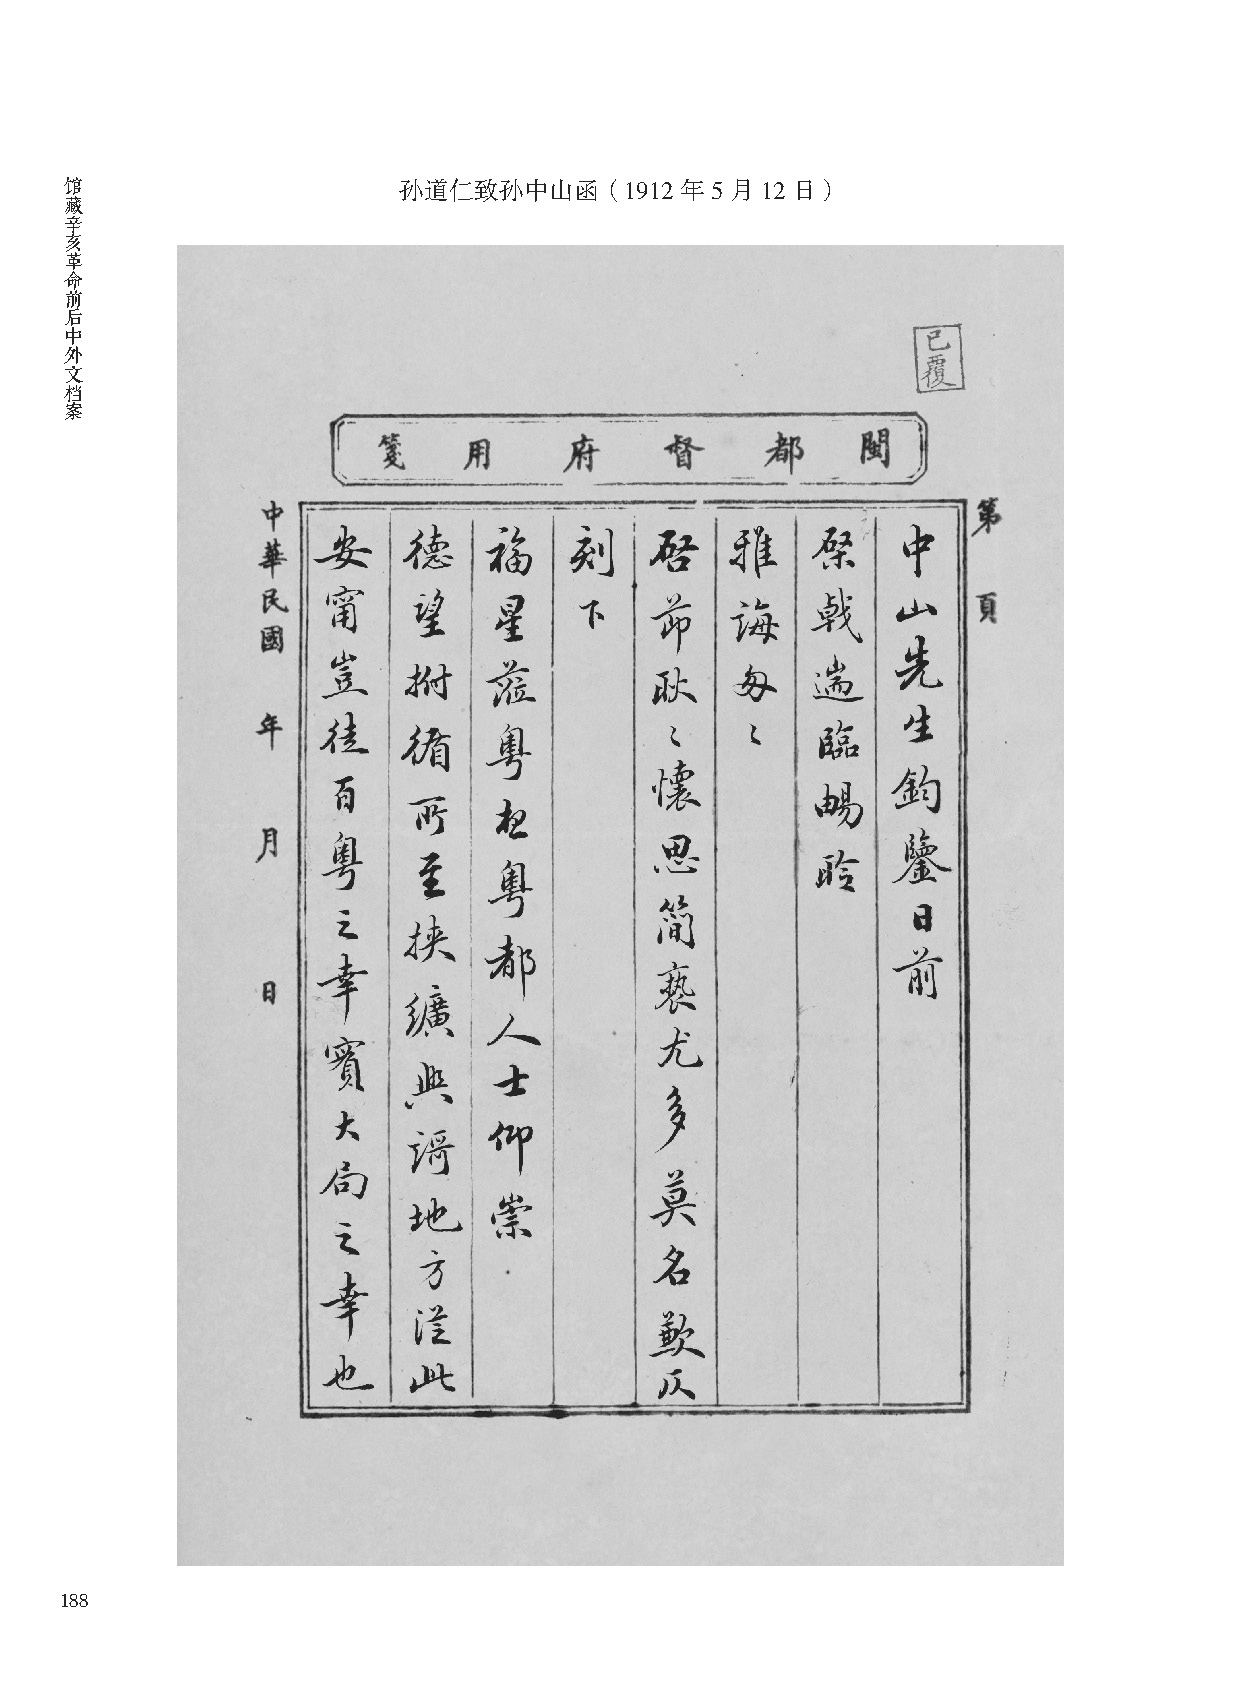 孙道仁致孙中山函（1912 年 5 月 12 日）
馆藏辛亥革命前后中外文档案
已覆
閩都督府用箋
第 頁
中山先生鈞鑒日前
棨戟遄臨暢聆
雅誨匆〻
啓節耿〻懷思簡褻尤多莫名歉仄
刻下
福星蒞粵想粵都人士仰崇
德望拊循所至挾纊興謌地方從此
安甯豈徒百粵之幸實大局之幸也
中華民國 年 月 日
188